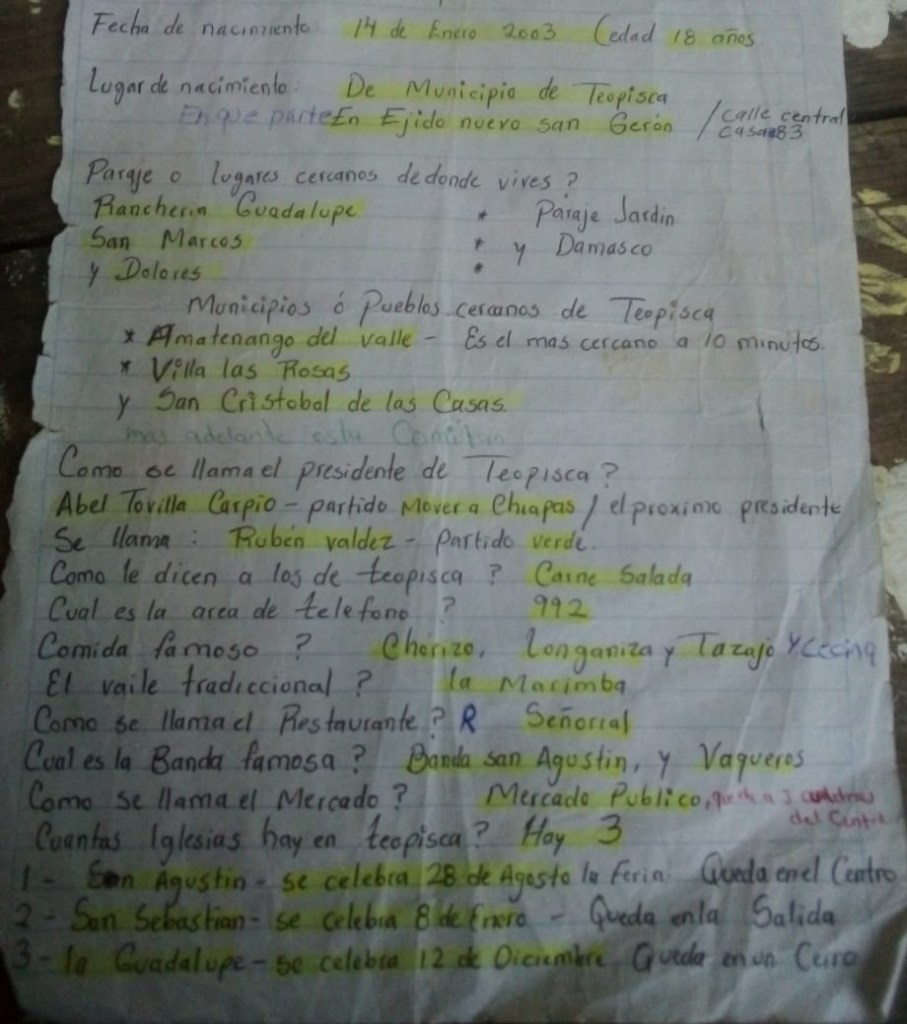 Fecha de nacimiento: 14 de Enero 2003 (edad 18 años
Lugar de nacimiento: De Municipio de Teopisca
En que parte En Ejido nuevo san Gerón / calle central
casa 83
Paraje o lugares cercanos dedonde vives?
Rancheria Guadalupe * Paraje Jardin
San Marcos * y Damasco
y Dolores *
Municipios ó Pueblos cercanos de Teopisca
* Amatenango del valle - Es el mas cercano a 10 minutos.
* Villa las Rosas
y San Cristobal de las Casas.
mas adelante esta Comitan
Como se llama el presidente de Teopisca?
Abel Tovilla Carpio - partido Mover a Chiapas / el proximo presidente
Se llama: Rubén valdez - Partido verde.
Como le dicen a los de teopisca? Carne Salada
Cual es la area de telefono? 992
Comida famoso? Chorizo, Longaniza y Tazajo y cecina
El vaile tradiccional? la Marimba
Como se llama el Restaurante? R Señorial
Cual es la Banda famosa? Banda san Agustin, y Vaqueros
Como se llama el Mercado? Mercado Publico, queda a 3 cuadras
del Centro
Cuantas Iglesias hay en teopisca? Hay 3
1- San Agustin - se celebra 28 de Agosto la Feria. Queda en el Centro
2- San Sebastian - se celebra 8 de Enero - Queda en la Salida
3- la Guadalupe - se celebra 12 de Diciembre Queda en un Cerro